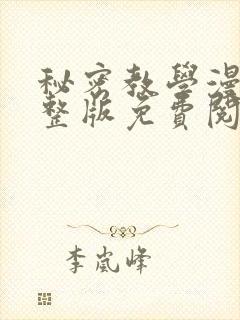 秘密教學漫
整版免費閱
李嵐峰